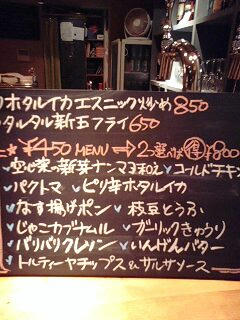 ホタルイカエスニック炒め 850
タルタル新玉フライ 650
★ ¥450 MENU ⇒ 2つ選べば得 ¥800
新芽ナンマヨ和え ✓コールドチキン
✓パクトマ ✓ピリ辛ホタルイカ
✓なす揚げポン ✓枝豆とうふ
✓じゃこカブナムル ✓ガーリックきゅうり
✓バリバリクレソン ✓いんげんバター
✓トルティーヤチップス&サルサソース